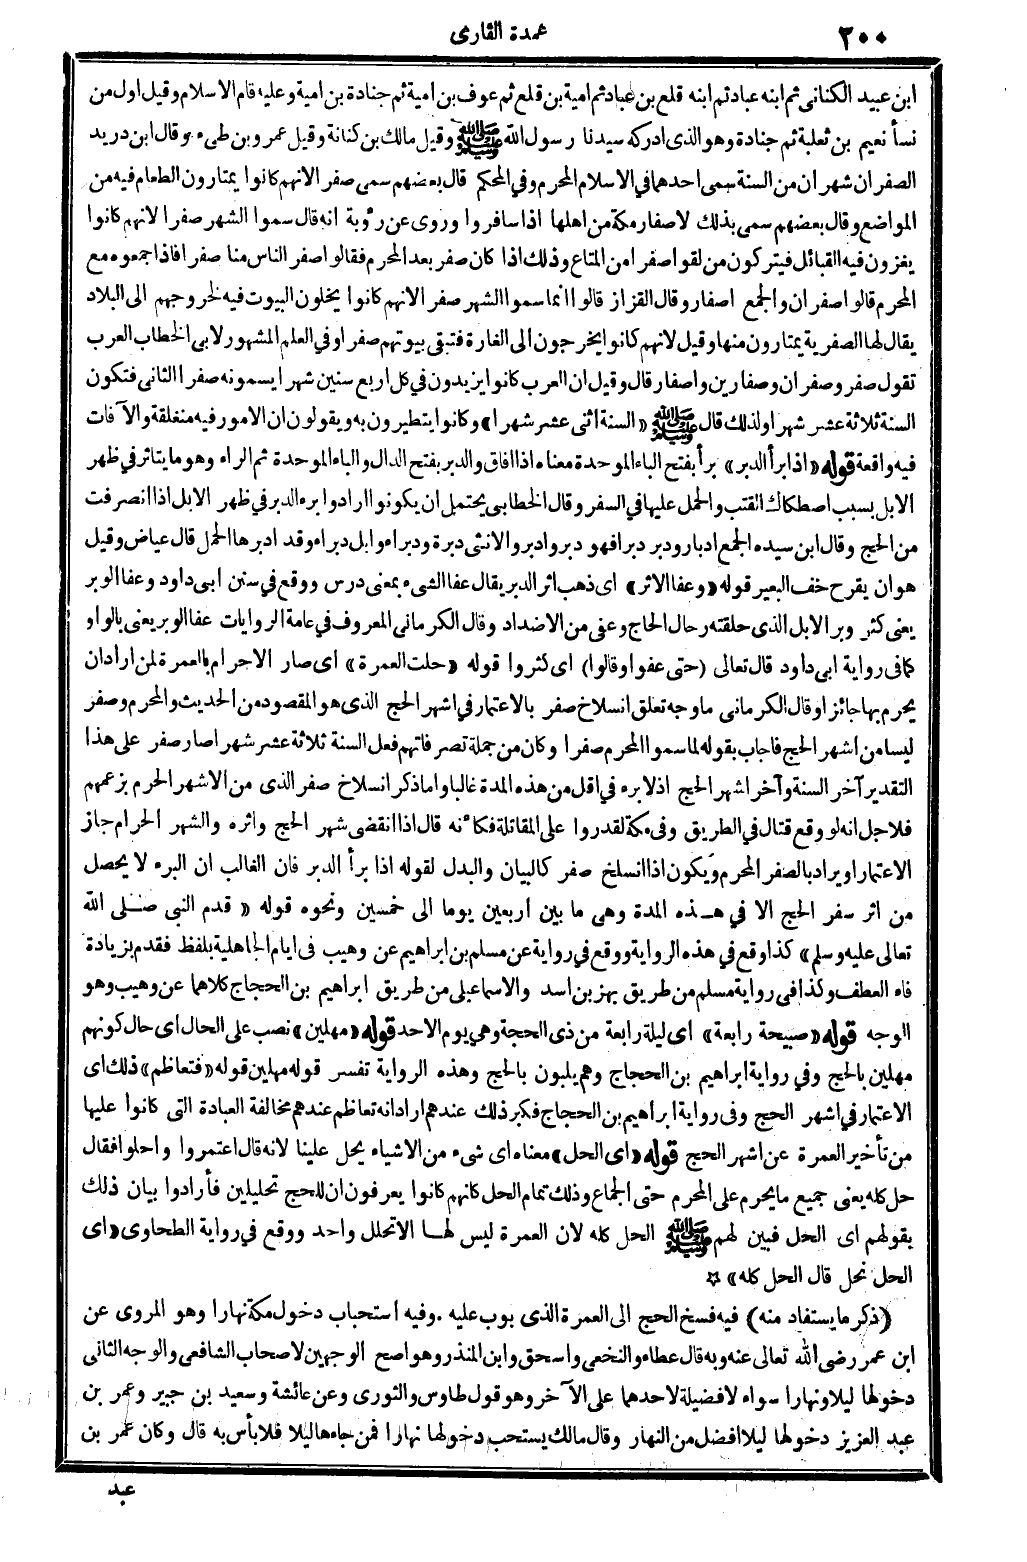 ٢٠٠ عمدة القارى
ابن عبيد الكنانى ثم ابنه عباد ثم ابنه قلع بن عباد ثم امية بن قلع ثم عوف بن امية ثم جنادة بن امية وعليه قام الاسلام وقيل اول من
نسأ نعيم بن ثعلبة ثم جنادة وهو الذى ادركه سيدنا رسول الله ﷺ وقيل مالك بن كنانة وقيل عمرو بن طىء وقال ابن دريد
الصفران شهران من السنة سمى احدهما فى الاسلام المحرم وفى المحكم قال بعضهم سمى صفر الانهم كانوا يمتارون الطعام فيه من
المواضع وقال بعضهم سمى بذلك لاصفار مكة من اهلها اذا سافروا وروى عن رؤبة انه قال سموا الشهر صفرا لانهم كانوا
يغزون فيه القبائل فيتركون من لقوا صفرا من المتاع وذلك اذا كان صفر بعد المحرم فقالوا صفر الناس منا صفرا فاذا جمعوه مع
المحرم قالوا صفران والجمع اصفار وقال القزاز قالوا انما سموا الشهر صفر الانهم كانوا يخلون البيوت فيه لخروجهم الى البلاد
يقال لها الصفرية يمتارون منها وقيل لانهم كانوا يخرجون الى الغارة فتبقى بيوتهم صفرا وفى العلم المشهور لابى الخطاب العرب
تقول صفر وصفران وصفارين واصفار قال وقيل ان العرب كانوا يزيدون فى كل اربع سنين شهرا يسمونه صفرا الثانى فتكون
السنة ثلاثة عشر شهرا ولذلك قال ﷺ «السنة اثنى عشر شهرا» وكانوا يتطيرون به ويقولون ان الامور فيه منغلقة والآفات
فيه واقعة قوله «اذا برأ الدبر» برأ بفتح الباء الموحدة معناه اذا افاق والدبر بفتح الدال والباء الموحدة ثم الراء وهو ما يتاثر فى ظهر
الابل بسبب اصطكاك القتب والحمل عليها فى السفر وقال الخطابى يحتمل ان يكونوا ارادوا برء الدبر فى ظهر الابل اذا انصرفت
من الحج وقال ابن سيده الجمع ادبار ودبر دبرا فهو دبر وادبر والانثى دبرة ودبراء وابل دبراء وقد ادبرها الحمل قال عياض وقيل
هو ان يقرح خف البعير قوله «وعفا الاثر» اى ذهب اثر الدبر يقال عفا الشىء بمعنى درس ووقع فى سنن ابى داود وعفا الوبر
يعنى كثر وبر الابل الذى حلقته رحال الحاج وعفى من الاضداد وقال الكرمانى المعروف فى عامة الروايات عفا الوبر يعنى بالواو
كما فى رواية ابى داود قال تعالى (حتى عفوا وقالوا) اى كثروا قوله «حلت العمرة» اى صار الاحرام بالعمرة لمن اراد ان
يحرم بها جائزا وقال الكرمانى ما وجه تعلق انسلاخ صفر بالاعتمار فى اشهر الحج الذى هو المقصود من الحديث والمحرم وصفر
ليسا من اشهر الحج فاجاب بقوله لما سموا المحرم صفرا وكان من جملة تصرفاتهم فعل السنة ثلاثة عشر شهرا صار صفر على هذا
التقدير آخر السنة وآخر اشهر الحج اذ لا برء فى اقل من هذه المدة غالبا واما ذكر انسلاخ صفر الذى من الاشهر الحرم بزعمهم
فلاجل انه لو وقع قتال فى الطريق وفى مكة لقدروا على المقاتلة فكأنه قال اذا انقضى شهر الحج واثره والشهر الحرام جاز
الاعتمار او يراد بالصفر المحرم ويكون اذا انسلخ صفر كالبيان والبدل لقوله اذا برأ الدبر فان الغالب ان البرء لا يحصل
من اثر سفر الحج الا فى هـذه المدة وهى ما بين اربعين يوما الى خمسين ونحوه قوله «قدم النبى صلى الله
تعالى عليه وسلم» كذا وقع فى هذه الرواية ووقع فى رواية عن مسلم بن ابراهيم عن وهيب فى ايام الجاهلية بلفظ فقدم بزيادة
فاء العطف وكذا فى رواية مسلم من طريق بهز بن اسد والاسماعيلى من طريق ابراهيم بن الحجاج كلاهما عن وهيب وهو
الوجه قوله «صبيحة رابعة» اى ليلة رابعة من ذى الحجة وهى يوم الاحد قوله «مهلين» نصب على الحال اى حال كونهم
مهلين بالحج وفى رواية ابراهيم بن الحجاج وهم يلبون بالحج وهذه الرواية تفسر قوله مهلين قوله «فتعاظم» ذلك اى
الاعتمار فى اشهر الحج وفى رواية ابراهيم بن الحجاج فكبر ذلك عندهم اراد انه تعاظم عندهم مخالفة العبادة التى كانوا عليها
من تأخير العمرة عن اشهر الحج قوله «اى الحل» معناه اى شىء من الاشياء يحل علينا لانه قال اعتمروا واحلوا فقال
حل كله يعنى جميع ما يحرم على المحرم حتى الجماع وذلك تمام الحل كانهم كانوا يعرفون ان للحج تحليلين فأرادوا بيان ذلك
بقولهم اى الحل فبين لهم ﷺ الحل كله لان العمرة ليس لهـا الا تحلل واحد ووقع فى رواية الطحاوى «اى
الحل نحل قال الحل كله» ☆
(ذكر ما يستفاد منه) فيه فسخ الحج الى العمرة الذى بوب عليه . وفيه استحباب دخول مكة نهارا وهو المروى عن
ابن عمر رضى الله تعالى عنه وبه قال عطاء والنخعى واسحق وابن المنذر وهو اصح الوجهين لاصحاب الشافعى والوجه الثانى
دخولها ليلا ونهارا سواء لا فضيلة لاحدهما على الآخر وهو قول طاوس والثورى وعن عائشة وسعيد بن جبير وعمر بن
عبد العزيز دخولها ليلا افضل من النهار وقال مالك يستحب دخولها نهارا فمن جاءها ليلا فلا بأس به قال وكان عمر بن
عبد